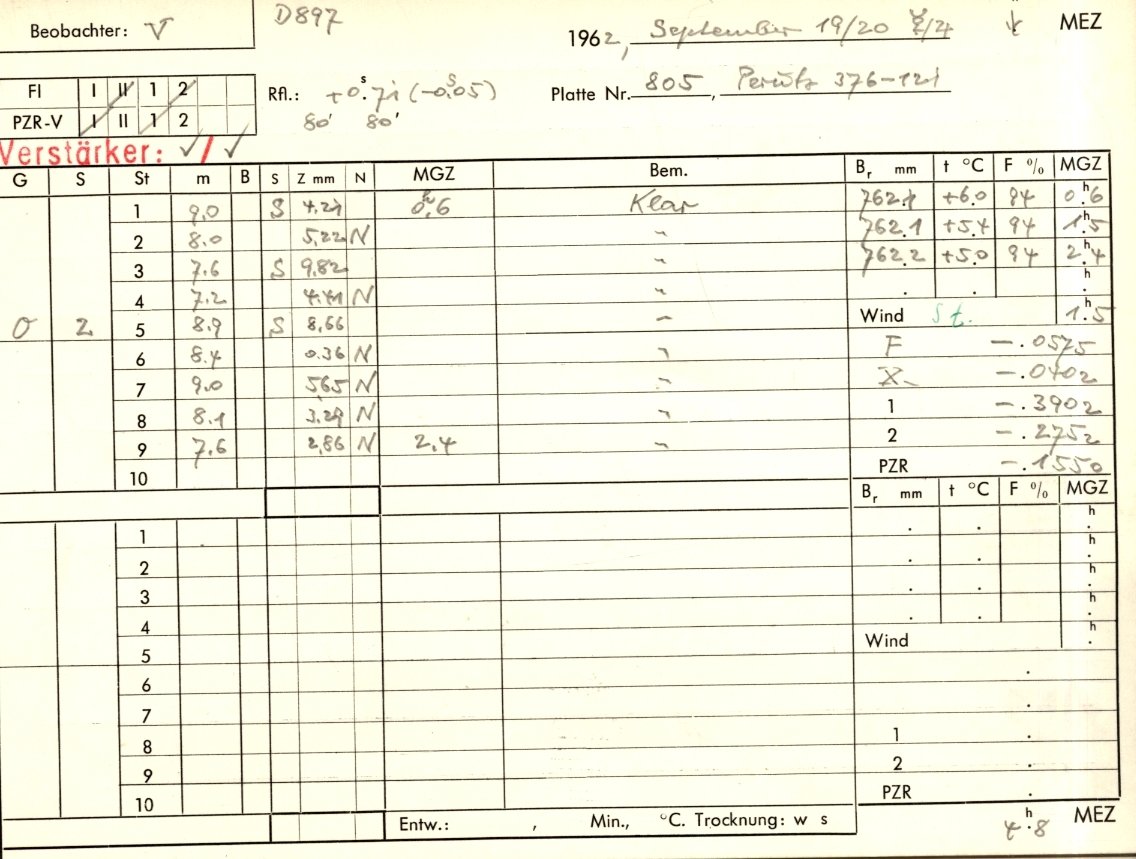 Beobachter: V D897 1962, September 19/20 MEZ
FI I II 1 2 Rfl.: +0.ˢ71 (-0.ˢ05) Platte Nr. 805, Perutz 376-121
PZR-V I II 1 2 80' 80'
Verstärker: ✓/✓
G S St m B S Z mm N MGZ Bem. Bᵣ mm t °C F % MGZ
1 9.0 S 4.21 0.ʰ6 Klar 762.1 +6.0 94 0.ʰ6
2 8.0 5.22 N " 762.1 +5.4 94 1.ʰ5
3 7.6 S 9.82 " 762.2 +5.0 94 2.ʰ4
4 7.2 4.41 N " . . h .
0 2 5 8.9 S 8.66 " Wind St. 1.ʰ5
6 8.4 0.36 N " F -.0575
7 9.0 5.65 N " X -.0402
8 8.1 3.29 N " 1 -.3902
9 7.6 2.86 N 2.4 " 2 -.2752
10 PZR -.1550
Bᵣ mm t °C F % MGZ
1 . . h .
2 . . h .
3 . . h .
4 . . h .
5 Wind h .
6 .
7 .
8 1 .
9 2 .
10 PZR .
Entw.: , Min., °C. Trocknung: w s 4.ʰ8 MEZ